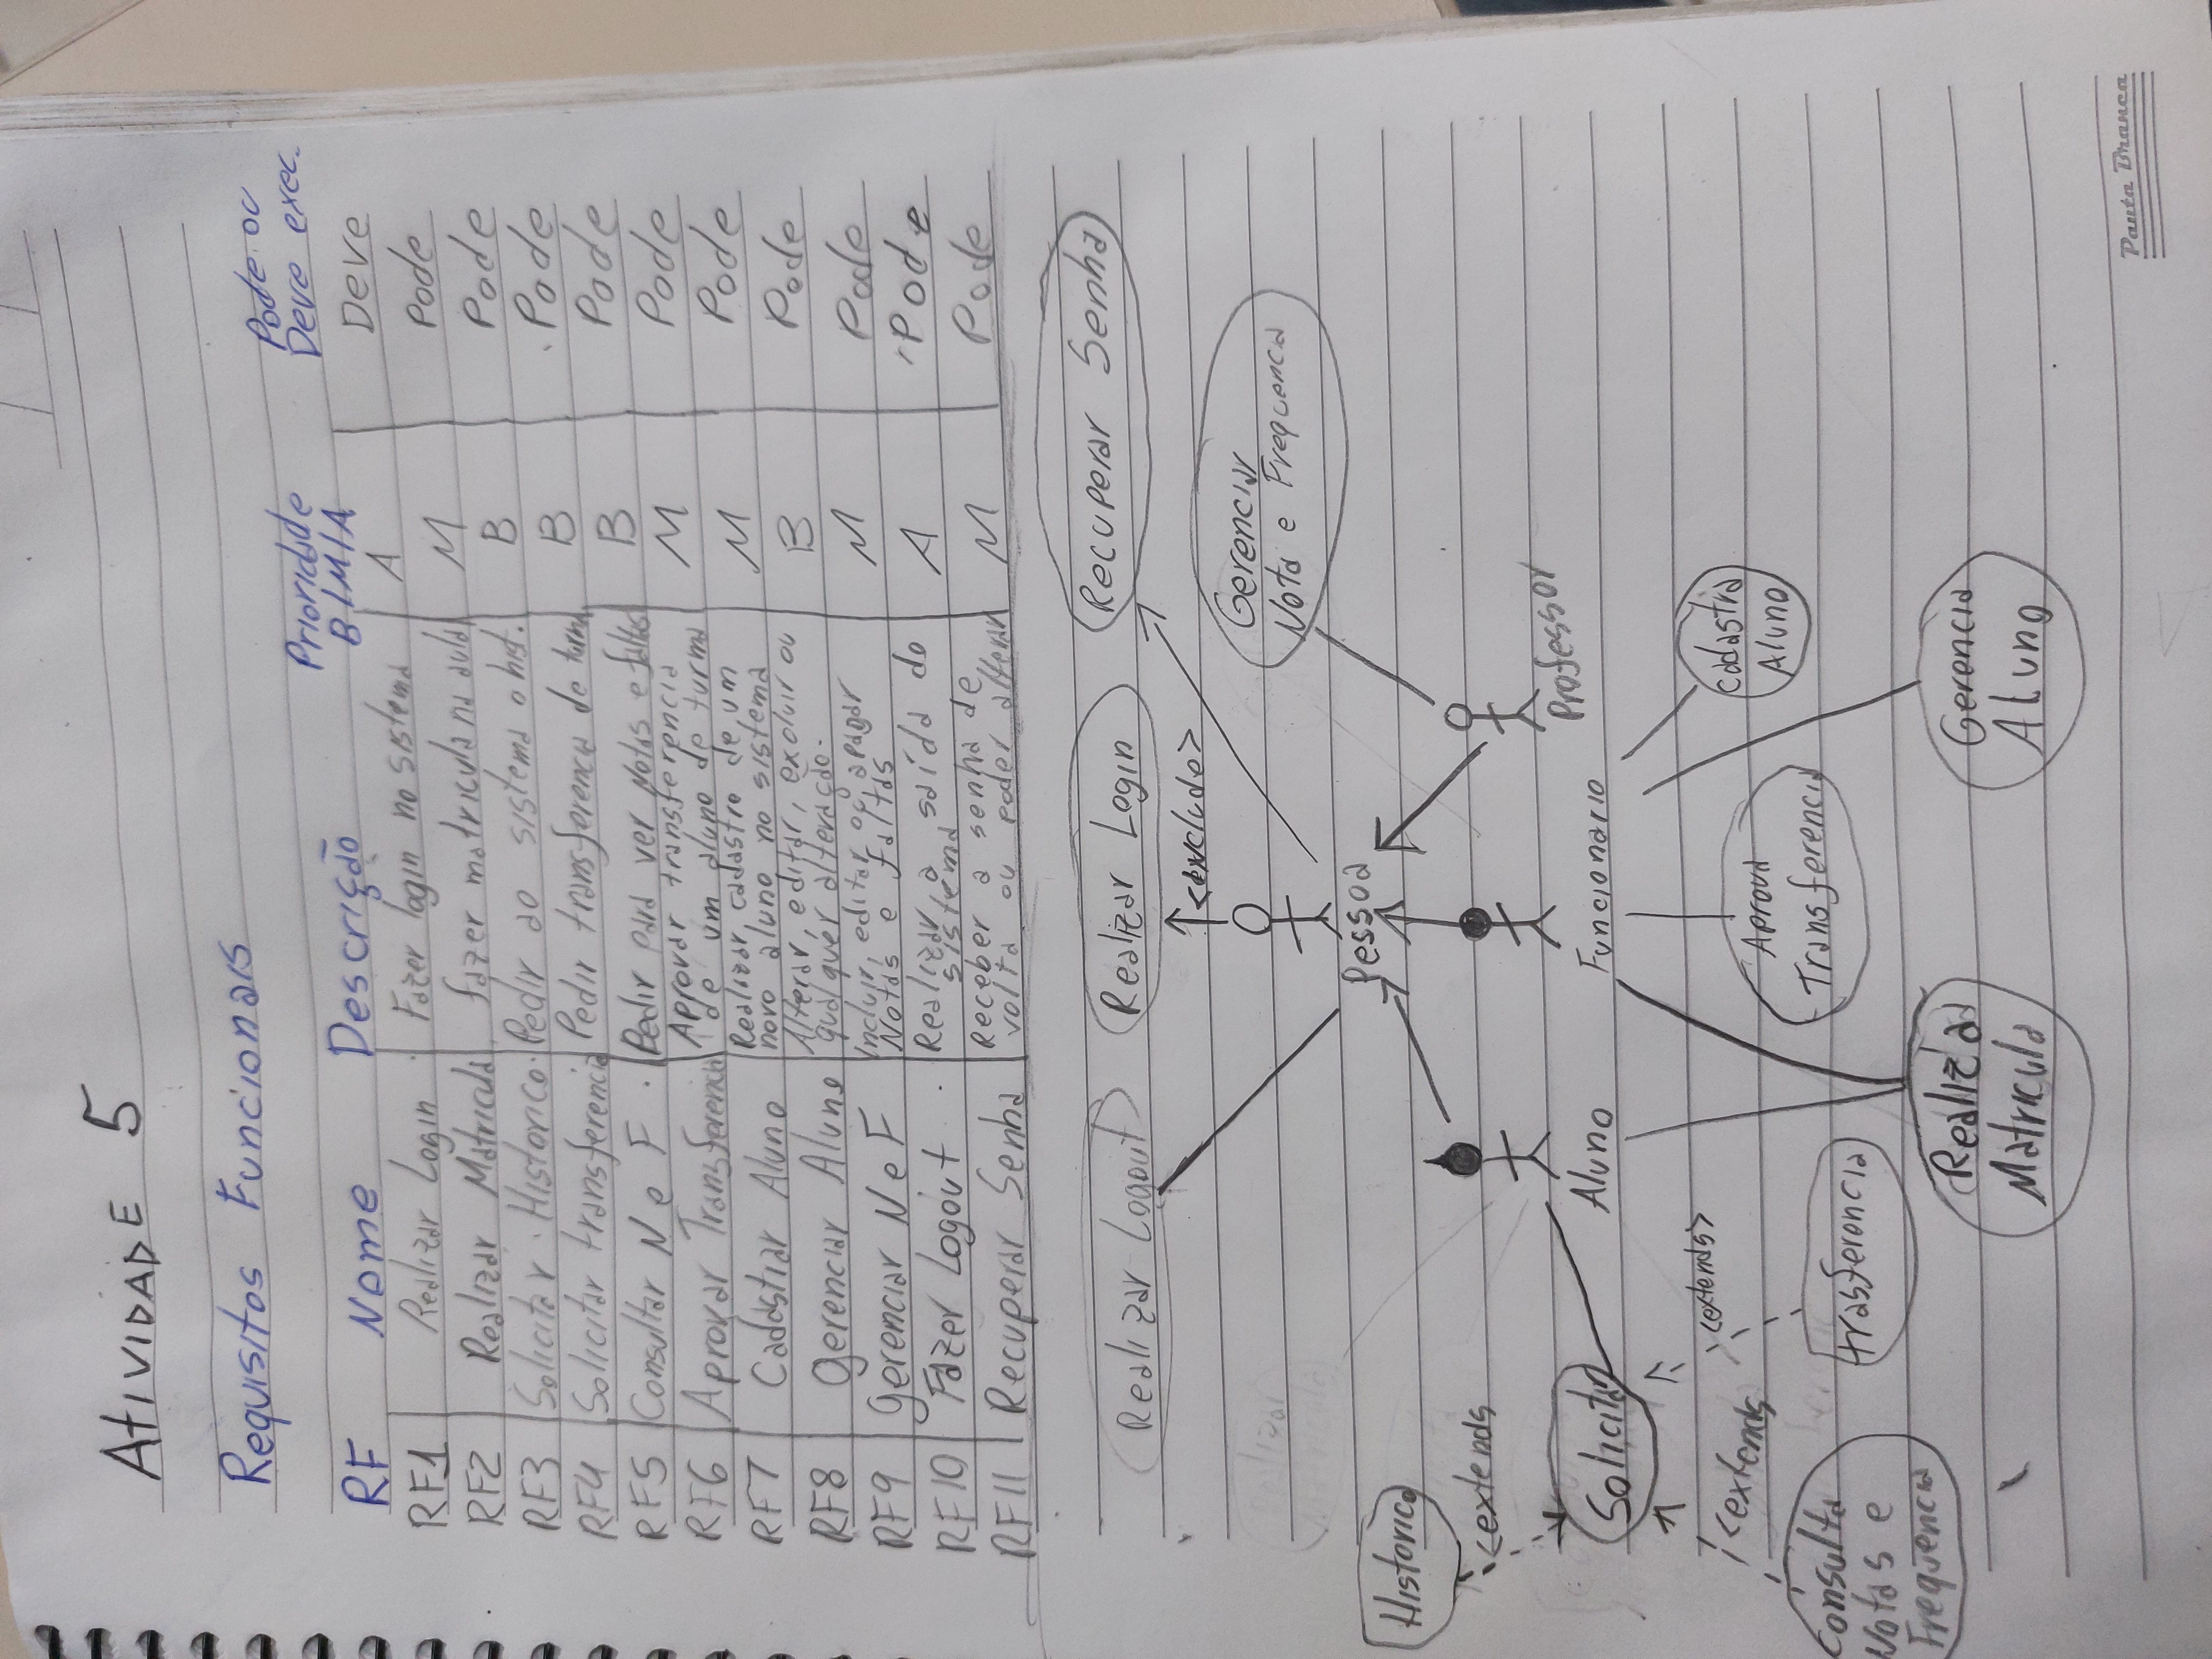 Atividade 5
Requisitos Funcionais
RF Nome Descrição Prioridade B/M/A Pode ou Deve exec.
RF1 Realizar Login Fazer login no sistema A Deve
RF2 Realizar Matricula fazer matricula na aula M Pode
RF3 Solicitar Historico Pedir ao sistema o hist. B Pode
RF4 Solicitar transferencia Pedir transferencia de turma B Pode
RF5 Consultar N e F Pedir para ver Notas e faltas B Pode
RF6 Aprovar Transferencia Aprovar transferencia de um aluno de turma M Pode
RF7 Cadastrar Aluno Realizar cadastro de um novo aluno no sistema M Pode
RF8 Gerenciar Aluno Alterar, editar, excluir ou qualquer alteração. B Pode
RF9 Gerenciar N e F Incluir, editar ou apagar Notas e faltas M Pode
RF10 Fazer Logout Realizar a saída do sistema A Pode
RF11 Recuperar Senha Receber a senha de volta ou poder alterar M Pode
Realizar Logout
Realizar Login
Recuperar Senha
Gerenciar
Nota e Frequencia
Realizar
Matricula
Pessoa
Historico
<extends
Solicitar
Aluno
Funcionario
Professor
<extends
<extends>
Consulta
Notas e
Frequencia
trasferencia
Aprova
Transferencia
Cadastra
Aluno
Realizar
Matricula
Gerencia
Aluno
Pauta Branca